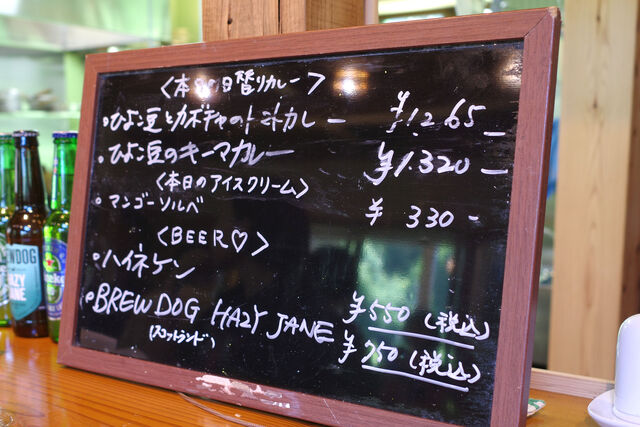 <本日の日替りカレー>
・ひよこ豆とカボチャのトマトカレー ¥1.265-
・ひよこ豆のキーマカレー ¥1.320-
<本日のアイスクリーム>
・マンゴーソルベ ¥330-
<BEER♡>
・ハイネケン ¥550(税込)
・BREWDOG HAZY JANE ¥750(税込)
(スコットランド)